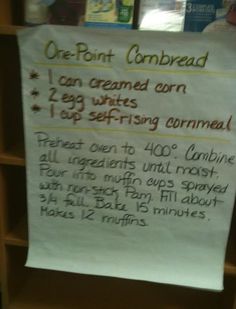 One-Point Cornbread
* 1 can creamed corn
* 2 egg whites
* 1 cup self-rising cornmeal
Preheat oven to 400°. Combine
all ingredients until moist.
Pour into muffin cups sprayed
with non-stick Pam. Fill about
3/4 full. Bake 15 minutes.
Makes 12 muffins.